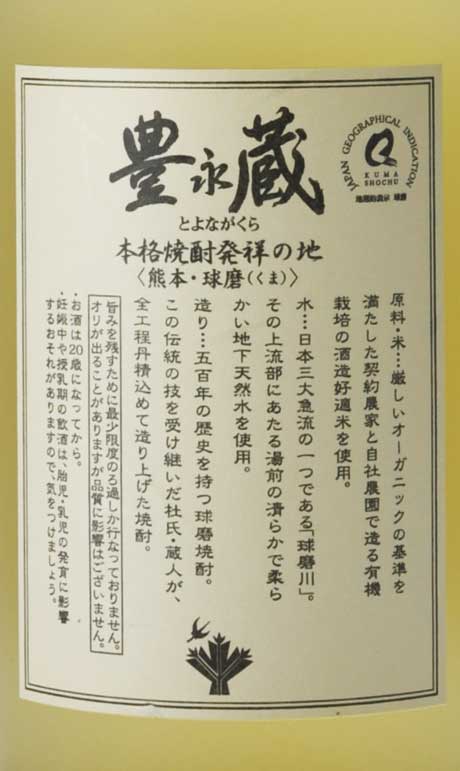 豊永蔵
とよながくら
本格焼酎発祥の地
〈熊本・球磨(くま)〉
JAPAN GEOGRAPHICAL INDICATION
KUMA
SHOCHU
地理的表示 球磨
原料・米…厳しいオーガニックの基準を
満たした契約農家と自社農園で造る有機
栽培の酒造好適米を使用。
水…日本三大急流の一つである「球磨川」。
その上流部にあたる湯前の清らかで柔ら
かい地下天然水を使用。
造り…五百年の歴史を持つ球磨焼酎。
この伝統の技を受け継いだ杜氏・蔵人が、
全工程丹積込めて造り上げた焼酎。
旨みを残すために最少限度のろ過しか行なっておりません。
オリが出ることがありますが品質に影響はございません。
・お酒は20歳になってから。
・妊娠中や授乳期の飲酒は、胎児・乳児の発育に影響
するおそれがありますので、気をつけましょう。